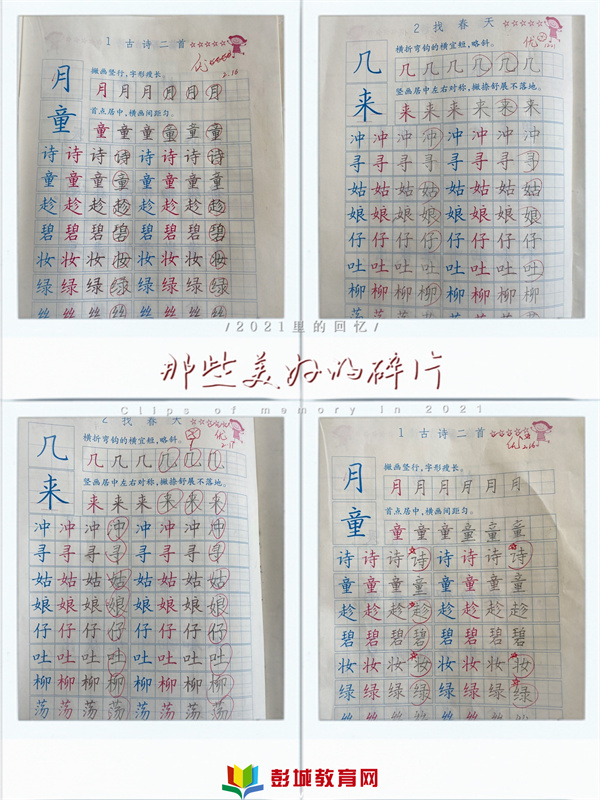 1 古诗二首
优
2.16
月
撇画竖行，字形瘦长。
月 月 月 月 月 月
童
首点居中，横画间距匀。
童 童 童 童 童 童
诗 诗 诗 诗 诗 诗 诗 诗
童 童 童 童 童 童 童 童
趁 趁 趁 趁 趁 趁 趁 趁
碧 碧 碧 碧 碧 碧 碧 碧
妆 妆 妆 妆 妆 妆 妆 妆
绿 绿 绿 绿 绿 绿 绿 绿
丝 丝 丝 丝 丝 丝 丝 丝
2 找春天
优
几
横折弯钩的横宜短，略斜。
几 几 几 几 几 几
来
竖画居中左右对称，撇捺舒展不落地。
来 来 来 来 来 来
冲 冲 冲 冲 冲 冲 冲 冲
寻 寻 寻 寻 寻 寻 寻 寻
姑 姑 姑 姑 姑 姑 姑 姑
娘 娘 娘 娘 娘 娘 娘 娘
仔 仔 仔 仔 仔 仔 仔 仔
吐 吐 吐 吐 吐 吐 吐 吐
柳 柳 柳 柳 柳 柳 柳 柳
荡 荡 荡 荡 荡 荡 荡 荡
/2021里的回忆/
那些美好的碎片
Clips of memory in 2021
2 找春天
优
2.17
几
横折弯钩的横宜短，略斜。
几 几 几 几 几 几
来
竖画居中左右对称，撇捺舒展不落地。
来 来 来 来 来 来
冲 冲 冲 冲 冲 冲 冲 冲
寻 寻 寻 寻 寻 寻 寻 寻
姑 姑 姑 姑 姑 姑 姑 姑
娘 娘 娘 娘 娘 娘 娘 娘
仔 仔 仔 仔 仔 仔 仔 仔
吐 吐 吐 吐 吐 吐 吐 吐
柳 柳 柳 柳 柳 柳 柳 柳
荡 荡 荡 荡 荡 荡 荡 荡
1 古诗二首
优 2.16
月
撇画竖行，字形瘦长。
月 月 月 月 月 月
童
首点居中，横画间距匀。
童 童 童 童 童 童
诗 诗 诗 诗 诗 诗 诗 诗
童 童 童 童 童 童 童 童
趁 趁 趁 趁 趁 趁 趁 趁
碧 碧 碧 碧 碧 碧 碧 碧
妆 妆 妆 妆 妆 妆 妆 妆
绿 绿 绿 绿 绿 绿 绿 绿
彭城教育网